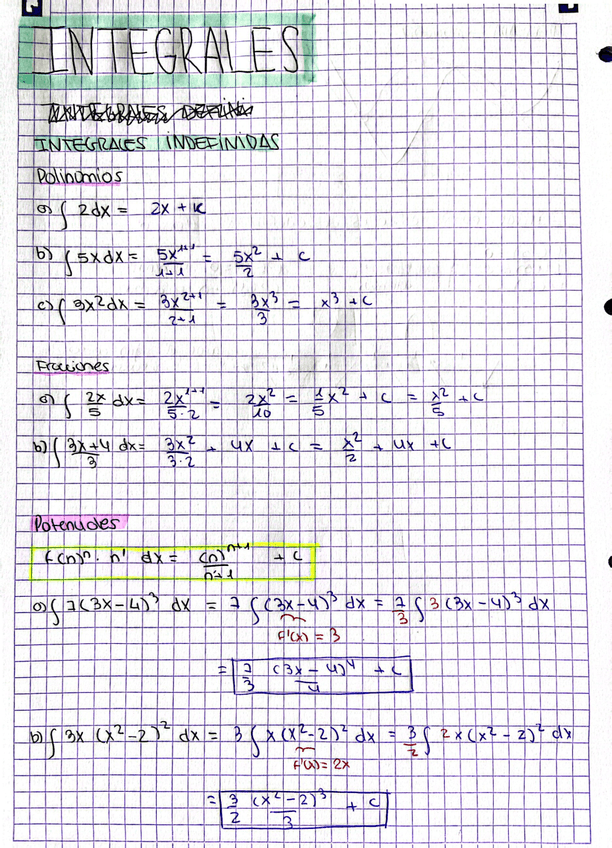 INTEGRALES
INTEGRALES INDEFINIDAS
Polinomios
a) ∫ 2dx = 2x + K
b) ∫ 5x dx = 5x^(1+1)/(1+1) = 5x²/2 + C
c) ∫ 3x² dx = 3x^(2+1)/(2+1) = 3x³/3 = x³ + C
Fracciones
a) ∫ 2x/5 dx = 2x^(1+1)/(5·2) = 2x²/10 = 1/5 x² + C = x²/5 + C
b) ∫ (3x+4)/3 dx = 3x²/(3·2) + 4x + C = x²/2 + 4x + C
Potenciales
f(n)^n · n' dx = (n)^(n+1)/(n+1) + C
a) ∫ 7(3x-4)³ dx = 7 ∫ (3x-4)³ dx = 7/3 ∫ 3(3x-4)³ dx
f'(x) = 3
= 7/3 (3x-4)⁴/4 + C
b) ∫ 3x (x²-2)² dx = 3 ∫ x(x²-2)² dx = 3/2 ∫ 2x(x²-2)² dx
f'(x) = 2x
= 3/2 (x²-2)³/3 + C